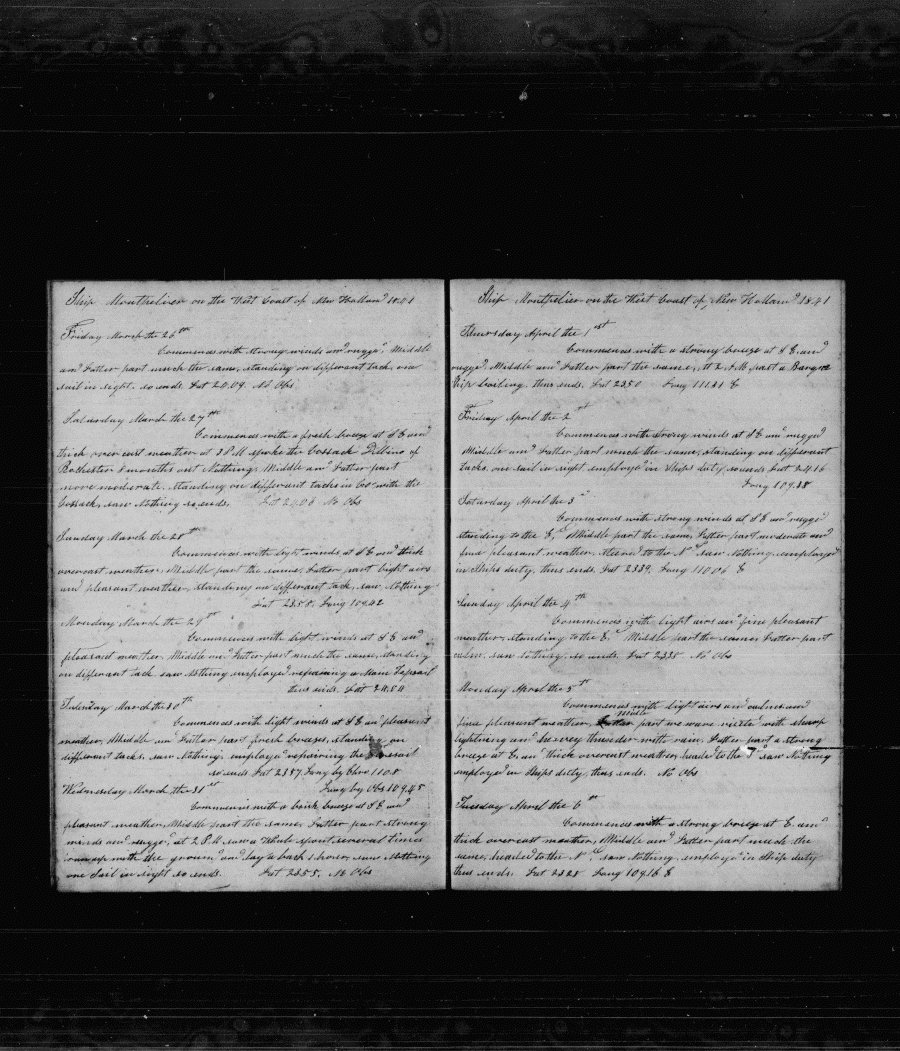 Ship Montpelier on the West Coast of New Holland 1841
Friday March the 26th
Commences with strong winds and rugged, Middle
and Latter part much the same, standing on different tack, one
sail in sight, so ends Lat 24.09. No Obs
Saturday March the 27th
Commences with a fresh breeze at S E and
thick overcast weather at 3 P.M spoke the Cossack Delano of
Rochester 8 months out Nothing, Middle and Latter part
more moderate. standing on different tacks in Co with the
Cossack, saw Nothing so ends. Lat 24.08 No Obs
Sunday March the 28th
Commences with light winds at S E and thick
overcast weather, Middle part the same, Latter part light airs
and pleasant weather, standing on different tack, saw Nothing
Lat 23.58, Long 109.42
Monday March the 29th
Commences with light winds at S E and
pleasant weather, Middle and Latter part much the same, standing
on different tack saw Nothing employed repairing a Main Topsail
thus ends. Lat 24.54
Tuesday March the 30th
Commences with light winds at S E and pleasant
weather, Middle and Latter part fresh breezes, standing on
different tacks, saw Nothing, employed repairing the sail
so ends Lat 23.57. Long by Chro 110.8
Wednesday March the 31st Long by Obs 109.45
Commences with a brisk breeze at S E and
pleasant weather, Middle part the same, Latter part strong
winds and rugged, at 2 P.M saw a Whale spout several times
came up with the ground and lay a back 1 hour, saw Nothing
one Sail in sight so ends. Lat 23.55, No Obs
Ship Montpelier on the West Coast of New Holland 1841
Thursday April the 1st
Commences with a strong breeze at S E and
rugged, Middle and Latter part the same, at 2 A.M past a Barque
Ship boiling, thus ends. Lat 23.50 Long 111.21 E
Friday April the 2
Commences with strong winds at S E and rugged
Middle and Latter part much the same, standing on different
tacks. one sail in sight employed in Ships duty so ends Lat 24.16
Long 109.38
Saturday April the 3
Commences with strong winds at S E and rugged
standing to the Ed, Middle part the same, Latter part moderate and
fine pleasant weather, steered to the Nd saw Nothing, employed
in Ships duty, thus ends. Lat 23.39. Long 110.06 E
Sunday April the 4th
Commences with light airs and fine pleasant
weather, standing to the Ed Middle part the same, Latter part
calm. saw Nothing, so ends. Lat 23.38 No Obs
Monday April the 5th
Commences with light airs and calms and
fine pleasant weather, middle part we were visited with sharp
lightning and heavy thunder with rain, Latter part a strong
breeze at E. and thick overcast weather, headed to the saw Nothing
employed in Ships duty, thus ends. No Obs
Tuesday April the 6th
Commences with a strong breeze at E. and
thick overcast weather, Middle and Latter part much the
same, headed to the Nd, saw Nothing, employed in Ship duty
thus ends. Lat 23.28 Long 109.16 E